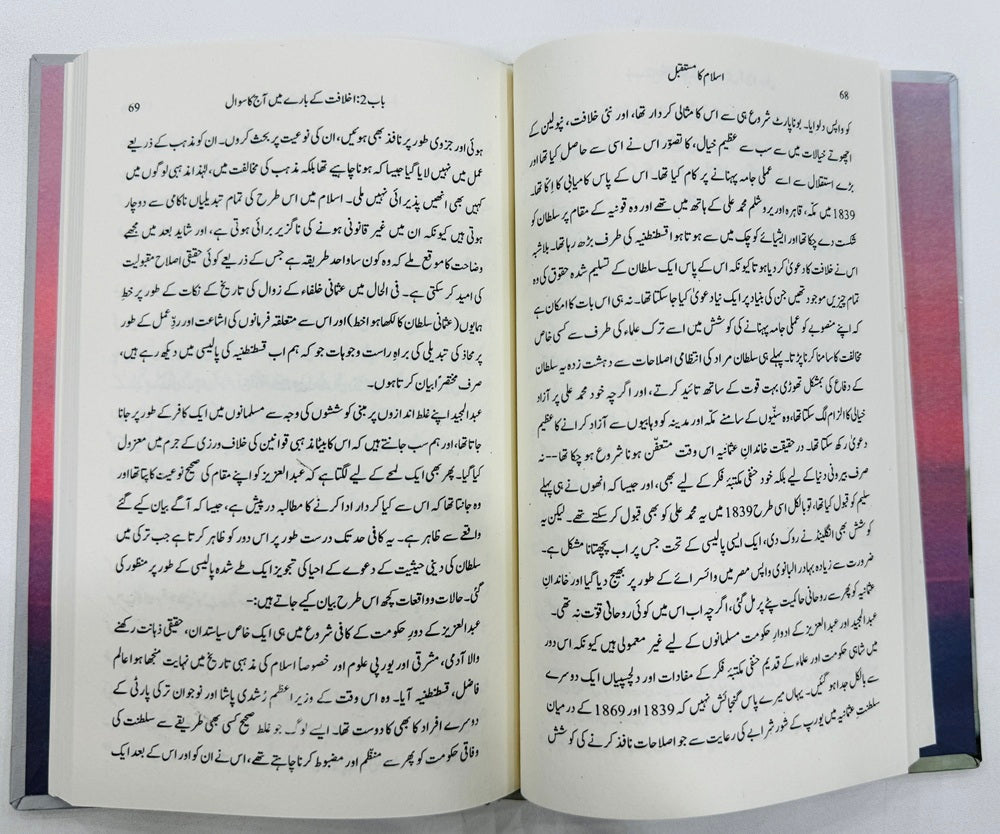 68
اسلام کا مستقبل
کو واپس دلوایا۔ بوناپارٹ شروع ہی سے اس کا مثالی کردار تھا، اور نئی خلافت، نپولین کے
اچھوتے خیالات میں سے سب سے عظیم خیال، کا تصوّر اس نے اسی سے حاصل کیا تھا اور
بڑے استقلال سے اسے عملی جامہ پہنانے پر کام کیا تھا۔ اس کے پاس کامیابی کا اِکّا تھا۔
1839 میں مکّہ، قاہرہ اور یروشلم محمد علی کے ہاتھ میں تھے اور وہ قونیہ کے مقام پر سلطان کو
شکست دے چکا تھا اور ایشیائے کوچک میں سے ہوتا ہوا قسطنطنیہ کی طرف بڑھ رہا تھا۔ بلاشبہ
اس نے خلافت کا دعویٰ کر دیا ہوتا کیونکہ اس کے پاس ایک سلطان کے تسلیم شدہ حقوق کی وہ
تمام چیزیں موجود تھیں جن کی بنیاد پر ایک نیا دعویٰ کیا جا سکتا تھا۔ نہ ہی اس بات کا امکان ہے
کہ اپنے منصوبے کو عملی جامہ پہنانے کی کوشش میں اسے ترک علماء کی طرف سے کسی خاص
مخالفت کا سامنا کرنا پڑتا۔ پہلے ہی سلطان مراد کی انتظامی اصلاحات سے دہشت زدہ یہ سلطان
کے دفاع کی بمشکل تھوڑی بہت قوت کے ساتھ تائید کرتے، اور اگرچہ خود محمد علی پر آزاد
خیالی کا الزام لگ سکتا تھا، وہ سنّیوں کے سامنے مکّہ اور مدینہ کو وہابیوں سے آزاد کرانے کا عظیم
دعویٰ رکھ سکتا تھا۔ درحقیقت خاندانِ عثمانیہ اس وقت متعفّن ہونا شروع ہو چکا تھا--نہ
صرف بیرونی دنیا کے لیے بلکہ خود حنفی مکتبۂ فکر کے لیے بھی، اور جیسا کہ انھوں نے ہی پہلے
سلیم کو قبول کیا تھا، تو بالکل اسی طرح 1839 میں یہ محمد علی کو بھی قبول کر سکتے تھے۔ لیکن یہ
کوشش بھی انگلینڈ نے روک دی، ایک ایسی پالیسی کے تحت جس پر اب پچھتانا مشکل ہے۔
ضرورت سے زیادہ بہادر البانوی واپس مصر میں وائسرائے کے طور پر بھیج دیا گیا اور خاندانِ
عثمانیہ کو پھر سے روحانی حاکمیت پٹے پر مل گئی، اگرچہ اب اس میں کوئی روحانی قوت نہ تھی۔
عبدالمجید اور عبدالعزیز کے ادوارِ حکومت مسلمانوں کے لیے غیر معمولی ہیں کیونکہ اس دور
میں شاہی حکومت اور علماء کے قدیم حنفی مکتبۂ فکر کے مفادات اور دلچسپیاں ایک دوسرے
سے بالکل جدا ہو گئیں۔ یہاں میرے پاس گنجائش نہیں کہ 1839 اور 1869 کے درمیان
سلطنتِ عثمانیہ میں یورپ کے شور شرابے کی رعایت سے جو اصلاحات نافذ کرنے کی کوشش
69
باب 2: اخلافت کے بارے میں آج کا سوال
ہوئی اور جزوی طور پر نافذ بھی ہوئیں، ان کی نوعیت پر بحث کروں۔ ان کو مذہب کے ذریعے
عمل میں نہیں لایا گیا جیسا کہ ہونا چاہیے تھا بلکہ مذہب کی مخالفت میں، لہٰذا مذہبی لوگوں میں
کہیں بھی انھیں پذیرائی نہیں ملی۔ اسلام میں اس طرح کی تمام تبدیلیاں ناکامی سے دوچار
ہوتی ہیں کیونکہ ان میں غیر قانونی ہونے کی ناگزیر برائی ہوتی ہے، اور شاید بعد میں مجھے
وضاحت کا موقع ملے کہ وہ کون سا واحد طریقہ ہے جس کے ذریعے کوئی حقیقی اصلاح مقبولیت
کی امید کر سکتی ہے۔ فی الحال میں عثمانی خلفاء کے زوال کی تاریخ کے نکات کے طور پر خطِ
ہمایوں (عثمانی سلطان کا لکھا ہوا خط) اور اس سے متعلقہ فرمانوں کی اشاعت اور ردِّ عمل کے طور
پر محاذ کی تبدیلی کی براہِ راست وجوہات جو کہ ہم اب قسطنطنیہ کی پالیسی میں دیکھ رہے ہیں،
صرف مختصراً بیان کرتا ہوں۔
عبدالمجید اپنے غلط اندازوں پر مبنی کوششوں کی وجہ سے مسلمانوں میں ایک کافر کے طور پر جانا
جاتا تھا، اور ہم سب جانتے ہیں کہ اس کا بیٹا مذہبی قوانین کی خلاف ورزی کے جرم میں معزول
کیا گیا۔ پھر بھی ایک لمحے کے لیے لگتا ہے کہ عبدالعزیز کو اپنے مقام کی صحیح نوعیت کا پتا تھا اور
وہ جانتا تھا کہ اس سے کیا کردار ادا کرنے کا مطالبہ درپیش ہے، جیسا کہ آگے بیان کیے گئے
واقعے سے ظاہر ہے۔ یہ کافی حد تک درست طور پر اس دور کو ظاہر کرتا ہے جب ترکی میں
سلطان کی دینی حیثیت کے دعوے کے احیا کی تجویز ایک طے شدہ پالیسی کے طور پر منظور کی
گئی۔ حالات و واقعات کچھ اس طرح بیان کیے جاتے ہیں:-
عبدالعزیز کے دورِ حکومت کے کافی شروع میں ہی ایک خاص سیاستدان، حقیقی ذہانت رکھنے
والا آدمی، مشرقی اور یورپی علوم اور خصوصاً اسلام کی مذہبی تاریخ میں نہایت منجھا ہوا عالم
فاضل، قسطنطنیہ آیا۔ وہ اس وقت کے وزیرِ اعظم رُشدی پاشا اور نوجوان ترکی پارٹی کے
دوسرے افراد کا بھی کا دوست تھا۔ ایسے لوگ جو غلط صحیح کسی بھی طریقے سے سلطنت کی
وفاقی حکومت کو پھر سے منظّم اور مضبوط کرنا چاہتے تھے، اس نے ان کو اور اس کے بعد ایک